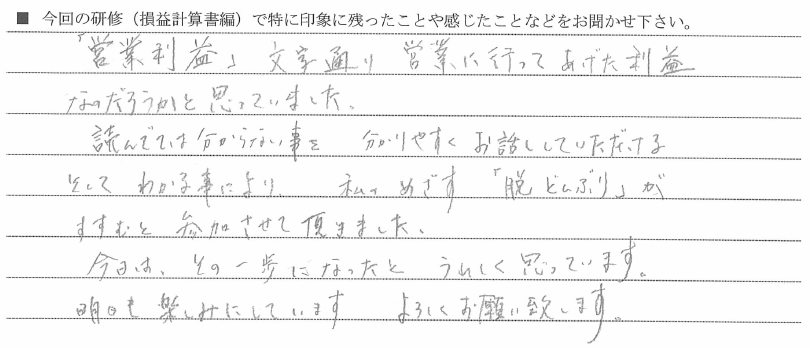 ■ 今回の研修（損益計算書編）で特に印象に残ったことや感じたことなどをお聞かせ下さい。
「営業利益」文字通り 営業に行ってあげた利益
なのだろうかと思っていました。
読んでては分からない事を 分かりやすくお話ししていただける
そして わかる事により、 私の めざす 「脱 どんぶり」が
すすむと 参加させて頂きました。
今日は、その一歩になったと うれしく思っています。
明日も楽しみにしています よろしくお願い致します。